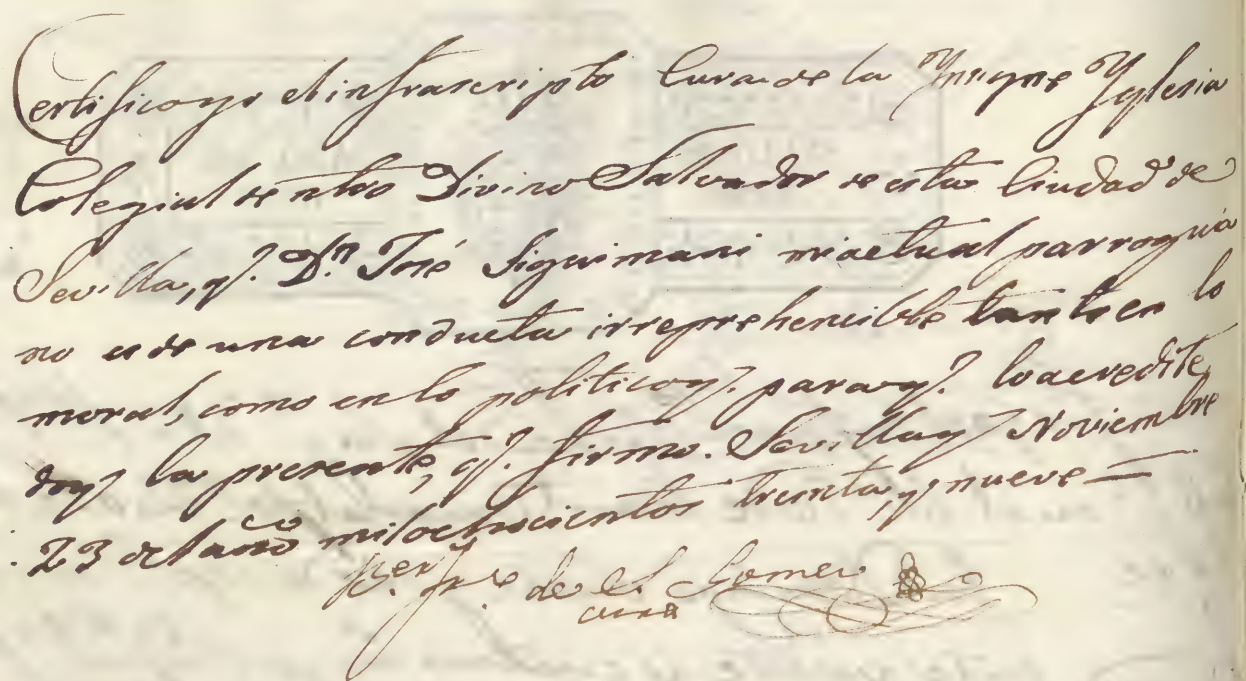 Certifico yo el infrascripto Cura de la Ynsigne Yglesia
Colegial de ntro Divino Salvador de esta Ciudad de
Sevilla, q.e D.n José Siguimani mi actual parroquia
no es de una conducta irreprehencible tanto en lo
moral, como en lo politico y p.a q.e lo acredite,
doy la presente, q.e firmo. Sevilla y Noviembre
23 del año mil ochocientos treinta, y nueve —
de S. Gomez
cura